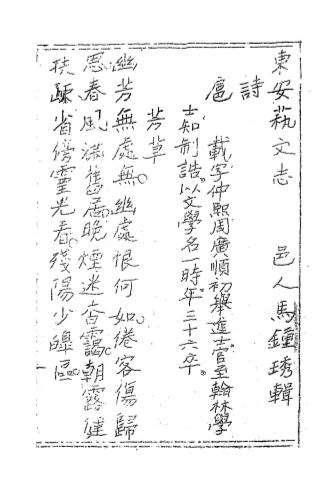 東安萟文志　邑人馬鍾琇輯
詩
扈載字仲熙周廣順初舉進士官至翰林學
士知制誥。以文學名一時。年三十六卒。
芳草
幽芳無處無。幽處恨何如。倦客傷歸
思。春風滿舊居。晚煙迷杳靄。朝露健
扶疎。省傍靈光看。殘陽少皥區。